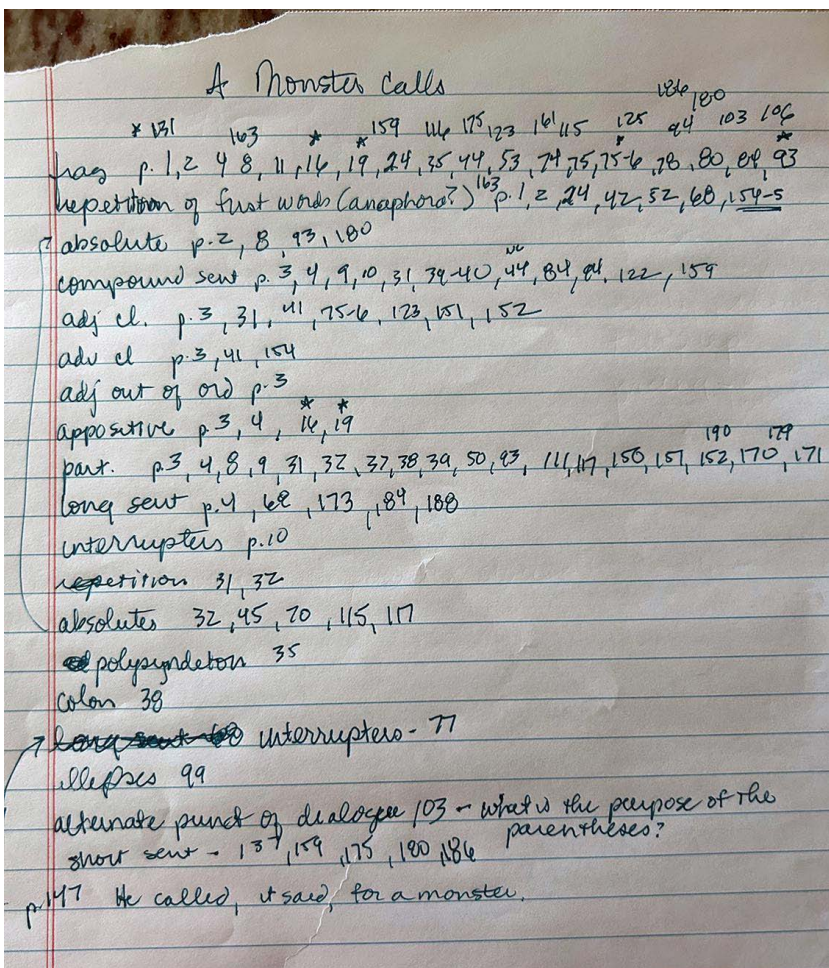 A Monster Calls
186 180
* 131 163 * * 159 116 175 123 161 115 125 94 103 106
frag p. 1, 2 4 8, 11, 16, 19, 24, 35, 44, 53, 74, 75, 75-6, 78, 80, 89, 93
repetition of first words (anaphora?) 163 p. 1, 2, 24, 42, 52, 68, 154-5
absolute p. 2, 8, 93, 180
compound sent p. 3, 4, 9, 10, 31, 39-40, 44, 84, 94, 122, 159
adj cl. p. 3, 31, 41, 75-6, 123, 151, 152
adv cl p. 3, 41, 154
adj out of ord p. 3
* *
appositive p. 3, 4, 16, 19
190 179
part. p. 3, 4, 8, 9, 31, 32, 37, 38, 39, 50, 93, 111, 117, 150, 151, 152, 170, 171
long sent p. 4, 68, 173, 84, 188
interrupters p. 10
repetition 31, 32
absolutes 32, 45, 70, 115, 117
polysyndeton 35
colon 38
interrupters - 77
ellipses 99
alternate punct of dialogue 103 - what is the purpose of the
parentheses?
short sent - 137, 159, 175, 180, 186
p. 147 He called, it said, for a monster.